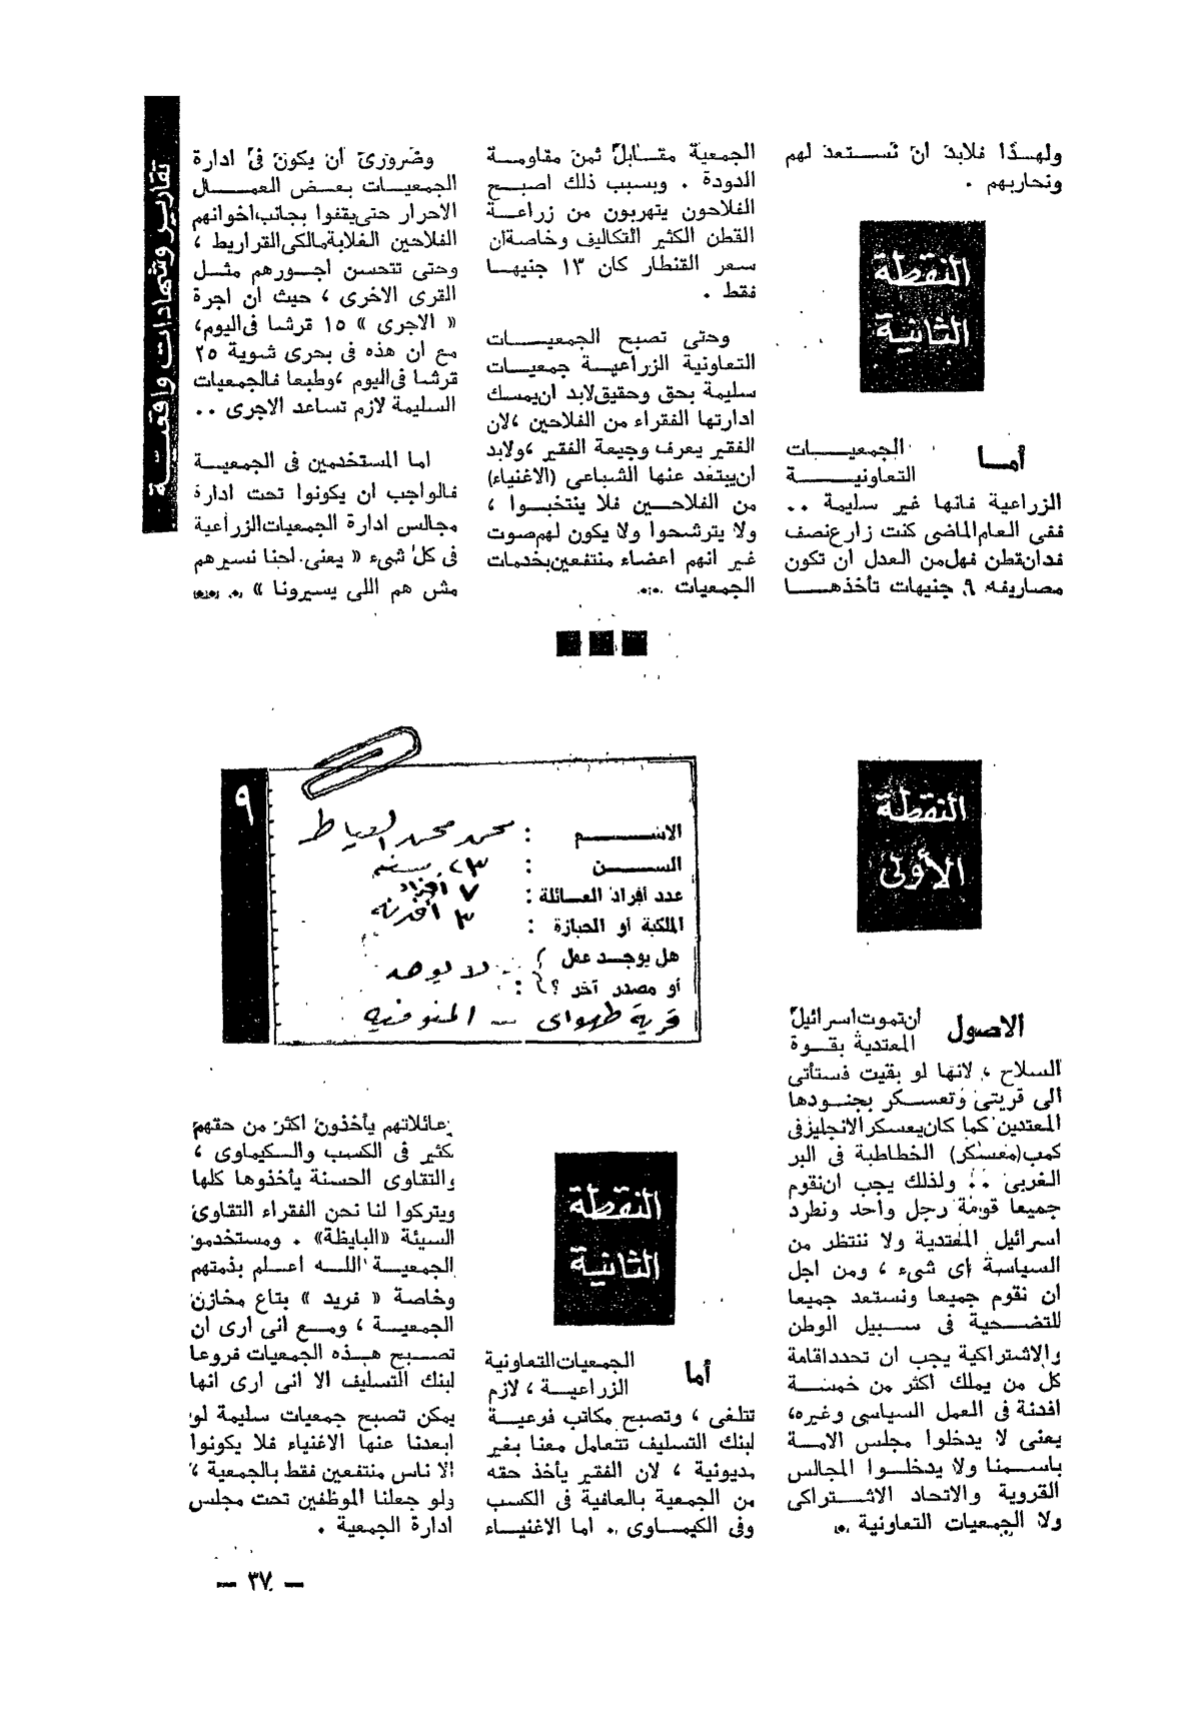 تقارير وشهادات واقعية
ولهذا فلابد ان نستعد لهم
ونحاربهم .
النقطة
الثانية
أما الجمعيات
التعاونية
الزراعية فانها غير سليمة ..
ففى العام الماضى كنت زارع نصف
فدان قطن فهل من العدل ان تكون
مصاريفه ٩ جنيهات تأخذها
الجمعية مقابل ثمن مقاومة
الدودة . وبسبب ذلك اصبح
الفلاحون يتهربون من زراعة
القطن الكثير التكاليف وخاصة ان
سعر القنطار كان ١٣ جنيها
فقط .
وحتى تصبح الجمعيات
التعاونية الزراعية جمعيات
سليمة بحق وحقيق لابد ان يمسك
ادارتها الفقراء من الفلاحين ، لان
الفقير يعرف وجيعة الفقير ، ولابد
ان يبتعد عنها الشباعى (الاغنياء)
من الفلاحين فلا ينتخبوا ،
ولا يترشحوا ولا يكون لهم صوت
غير انهم اعضاء منتفعين بخدمات
الجمعيات ..
وضرورى ان يكون فى ادارة
الجمعيات بعض العمال
الاحرار حتى يقفوا بجانب اخوانهم
الفلاحين الغلابة مالكى القراريط ،
وحتى تتحسن اجورهم مثل
القرى الاخرى ، حيث ان اجرة
« الاجرى » ١٥ قرشا فى اليوم ،
مع ان هذه فى بحرى شوية ٢٥
قرشا فى اليوم ، وطبعا فالجمعيات
السليمة لازم تساعد الاجرى ..
اما المستخدمين فى الجمعية
فالواجب ان يكونوا تحت ادارة
مجالس ادارة الجمعيات الزراعية
فى كل شىء « يعنى احنا نسيرهم
مش هم اللى يسيرونا » ...
٩
الاسم : محمد محمد العياط
السن : ٢٣ سنه
عدد أفراد العائلة : ٧ افراد
الملكية أو الحيازة : ٣ أفدنه
هل يوجد عمل
أو مصدر آخر ؟ : لا يوجد
قرية طهواى - المنوفيه
النقطة
الأولى
الاصول ان تموت اسرائيل
المعتدية بقوة
السلاح ، لانها لو بقيت فستأتى
الى قريتى وتعسكر بجنودها
المعتدين كما كان يعسكر الانجليز فى
كمب (معسكر) الخطاطبة فى البر
الغربى .. ولذلك يجب ان نقوم
جميعا قومة رجل واحد ونطرد
اسرائيل المعتدية ولا ننتظر من
السياسة اى شىء ، ومن اجل
ان نقوم جميعا ونستعد جميعا
للتضحية فى سبيل الوطن
والاشتراكية يجب ان تحدد اقامة
كل من يملك اكثر من خمسة
افدنة فى العمل السياسى وغيره ،
يعنى لا يدخلوا مجلس الامة
باسمنا ولا يدخلوا المجالس
القروية والاتحاد الاشتراكى
ولا الجمعيات التعاونية ..
النقطة
الثانية
أما الجمعيات التعاونية
الزراعية ، لازم
تتلغى ، وتصبح مكاتب فرعية
لبنك التسليف تتعامل معنا بغير
مديونية ، لان الفقير يأخذ حقه
من الجمعية بالعافية فى الكسب
وفى الكيماوى . اما الاغنياء
وعائلاتهم يأخذون اكثر من حقهم
كثير فى الكسب والكيماوى ،
والتقاوى الحسنة يأخذوها كلها
ويتركوا لنا نحن الفقراء التقاوى
السيئة «البايظة» . ومستخدمو
الجمعية الله اعلم بذمتهم
وخاصة « فريد » بتاع مخازن
الجمعية ، ومع انى ارى ان
تصبح هذه الجمعيات فروعا
لبنك التسليف الا انى ارى انها
يمكن تصبح جمعيات سليمة لو
ابعدنا عنها الاغنياء فلا يكونوا
الا ناس منتفعين فقط بالجمعية ،
ولو جعلنا الموظفين تحت مجلس
ادارة الجمعية .
— ٣٧ —